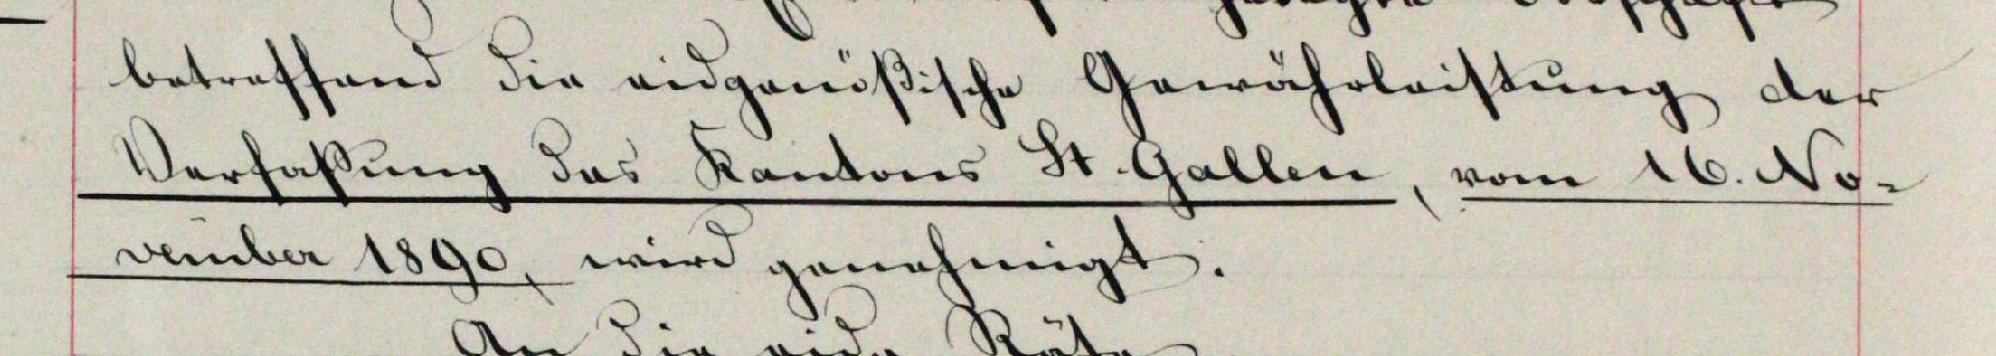 gelegte Botschaft
betreffend die eidgenößische Gewährleistung der
Verfaßung des Kantons St. Gallen, vom 16. No-
vember 1890, wird genehmigt.
An die eidg. Räte.